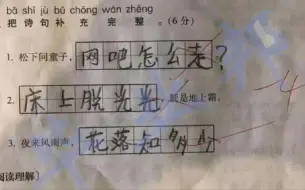 bǎ shī jù bǔ chōng wán zhěng
把 诗 句 补 充 完 整 。(6 分)
1. 松下问童子, 网吧怎么走?
2. 床上脱光光, 疑是地上霜。
3. 夜来风雨声, 花落知多少
-4
阅读理解〕